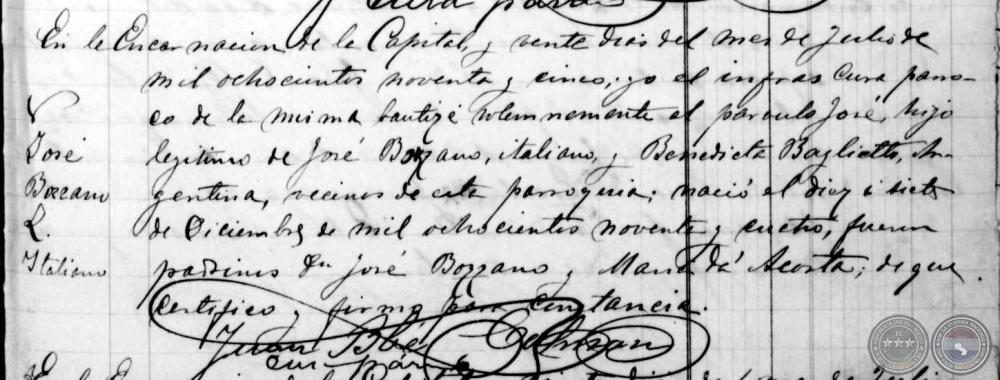 Cura párr
En la Encarnacion de la Capital, y vente dias del mes de Julio de
mil ochocientos noventa y cinco; yo el infras Cura párro-
co de la misma bautizé solemnemente el parvulo José, hijo
legitimo de José Bozzano, italiano, y Benedicta Baglietto, Ar-
gentina, vecinos de esta parroquia; nació el diez i siete
de Diciembre de mil ochocientos noventa y cuatro; fueron
padrinos Dn José Bozzano y Maria dá Acosta; de que
certifico y firmo para constancia.
Juan Bté
cura párr
José
Bozzano
L.
Italiano